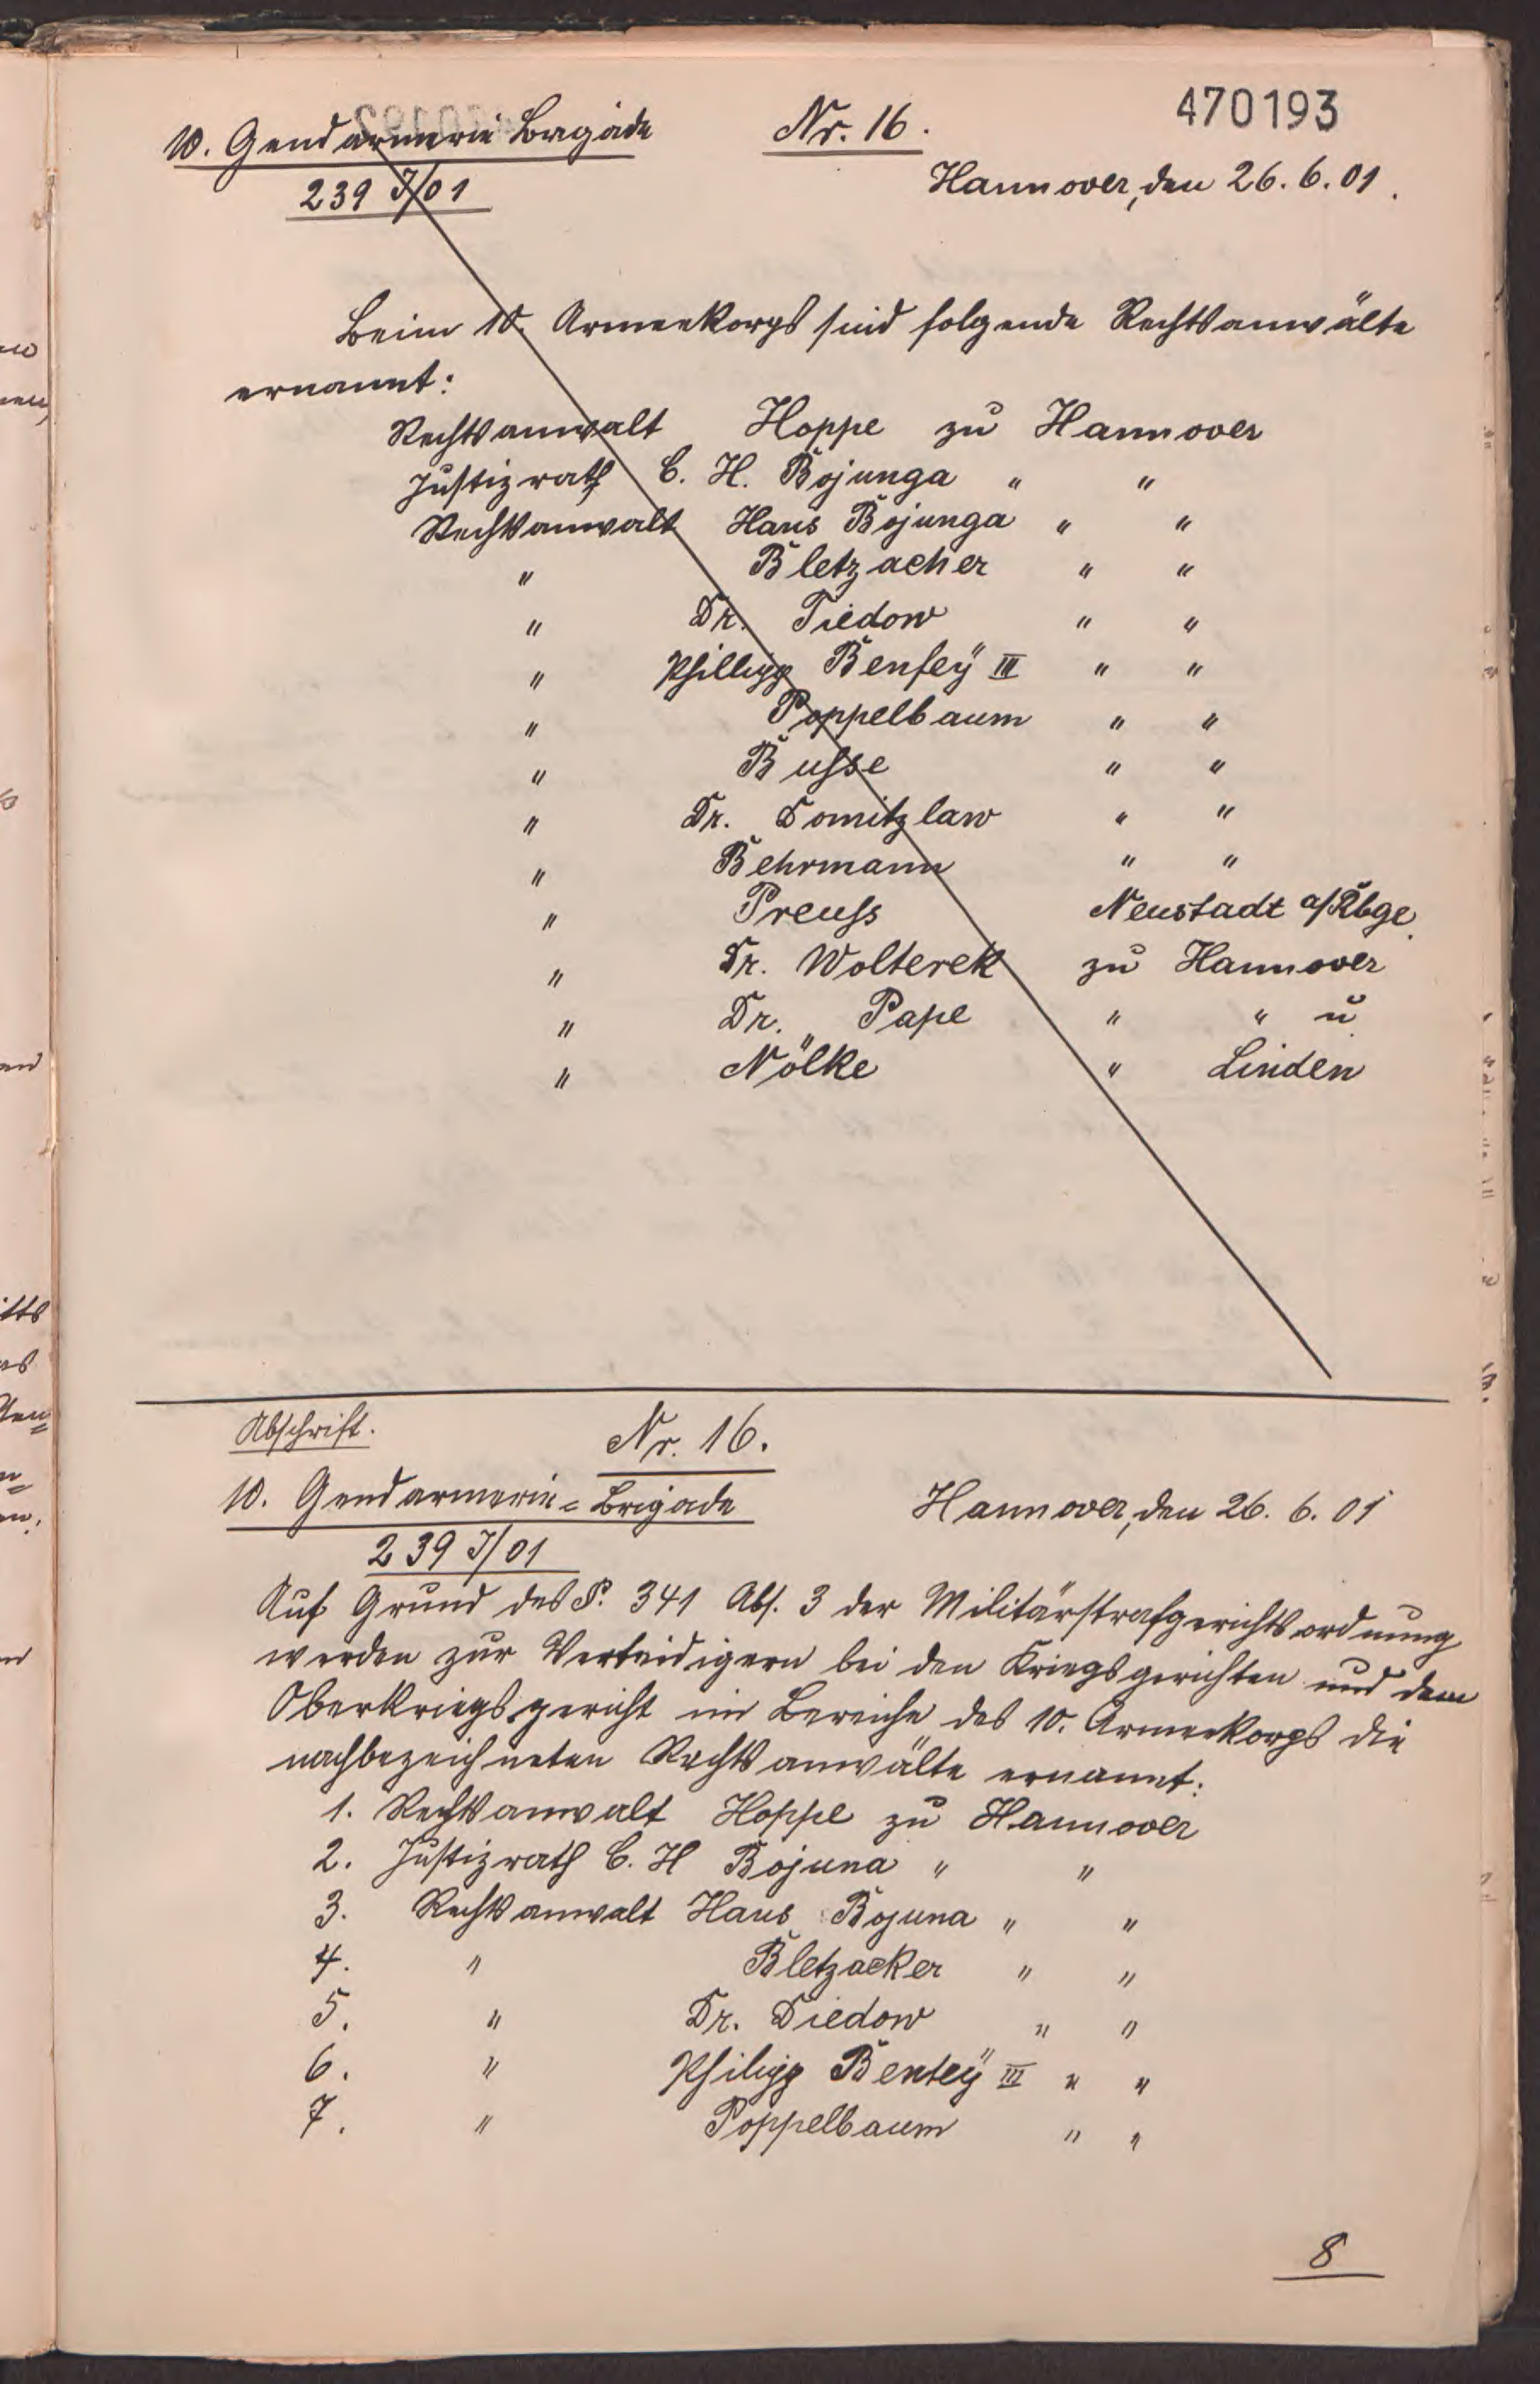 470193
10. Gendarmerie Brigade Nr. 16.
239 J/01 Hannover, den 26. 6. 01.
Beim 10. Armeekorps sind folgende Rechtsanwälte
ernannt:
Rechtsanwalt Hoppe zu Hannover
Justizrath C. H. Bojunga " "
Rechtsanwalt Hans Bojunga " "
" Bletzacher " "
" Dr. Tiedow " "
" Phillipp Benfey III " "
" Poppelbaum " "
" Busse " "
" Dr. Domitzlaw " "
" Behrmann " "
" Preuss Neustadt a/Rbge.
" Dr. Wolterek zu Hannover
" Dr. Pape " " u
" Nölke " Linden
Abschrift. Nr. 16.
10. Gendarmerie=Brigade Hannover, den 26. 6. 01
239 J/01
Auf Grund des §. 341 Abs. 3 der Militärstrafgerichtsordnung
werden zur Verteidigern bei den Kriegsgerichten und dem
Oberkriegsgericht im Bereiche des 10. Armeekorps die
nachbezeichneten Rechtsanwälte ernannt:
1. Rechtsanwalt Hoppe zu Hannover
2. Justizrath C. H Bojuna " "
3. Rechtsanwalt Hans Bojuna " "
4. " Bletzacker " "
5. " Dr. Diedow " "
6. " Philipp Bentey III " "
7. " Poppelbaum " "
8